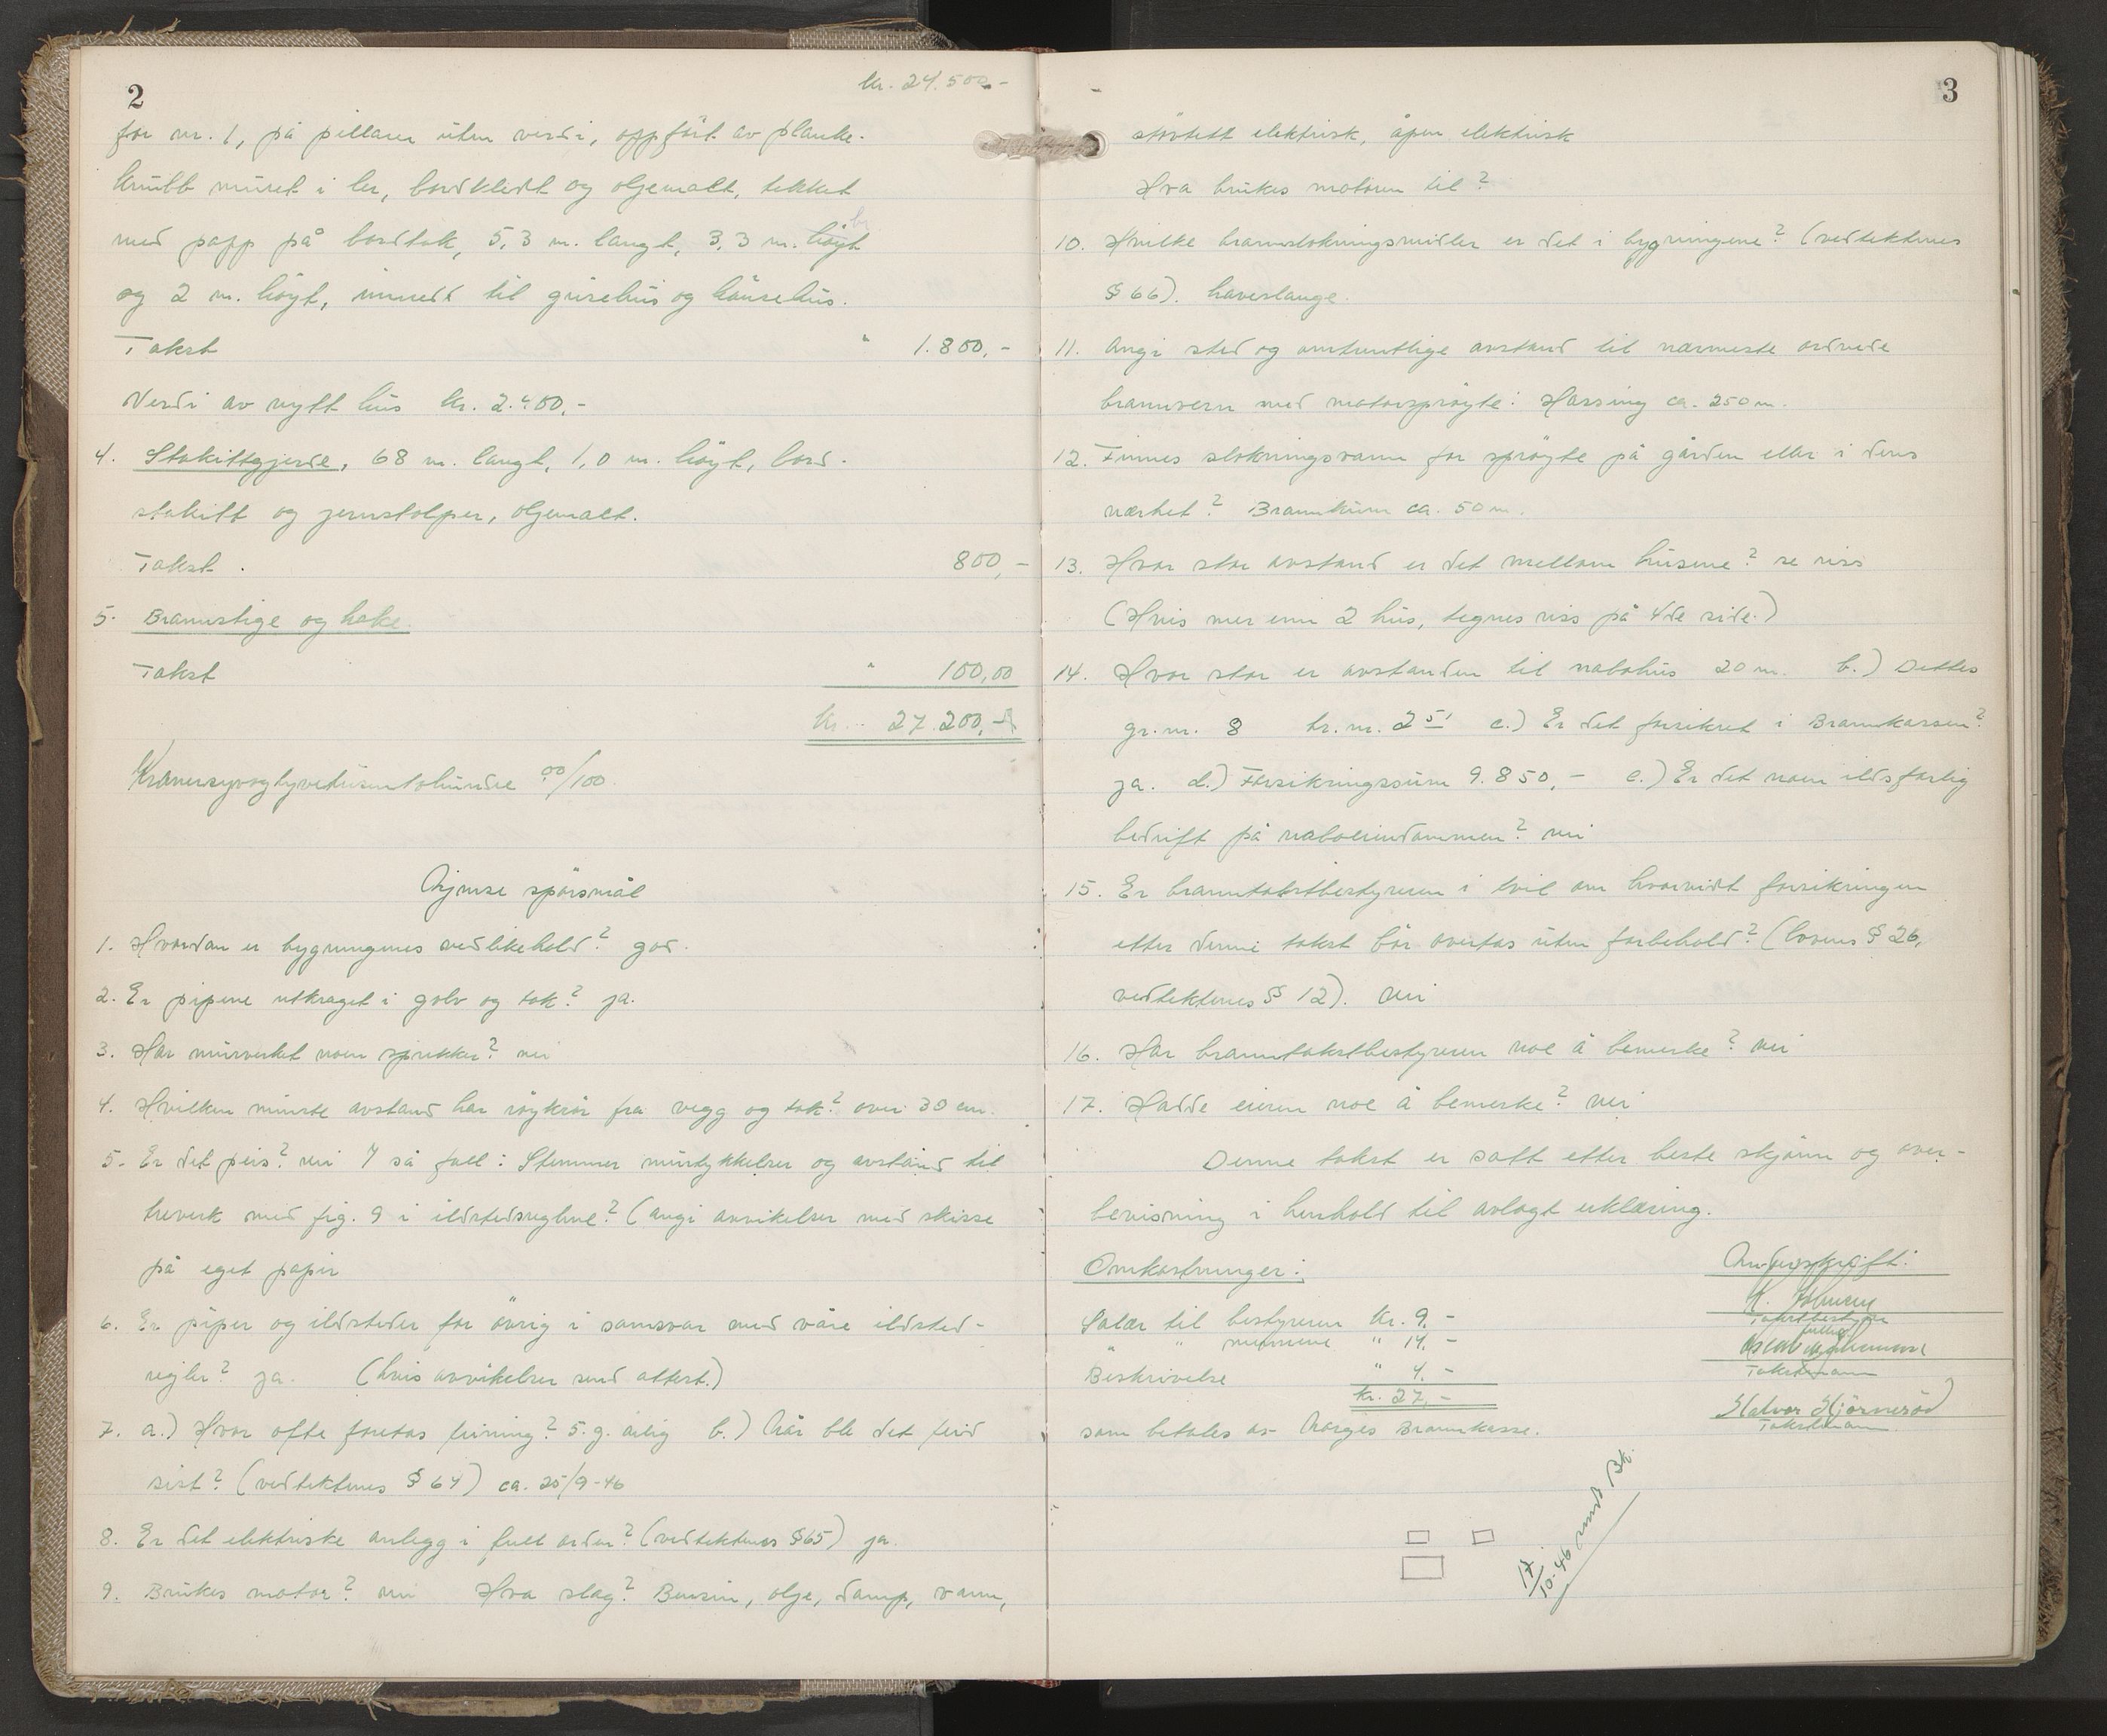 2
kr. 24.500.-
for nr. 1, på pillarer uten verdi, oppført av planke.
knubb muret i ler, bordkledt og oljemalt, tekket
med papp på bordtak, 5,3 m. langt, 3,3 m. høyt br
og 2 m. høyt, innredd til grisehus og hønsehus.
Takst " 1.800,-
Verdi av nytt hus kr. 2.400,-
4. Stakittgjerde, 68 m. langt, 1,0 m. høyt, bord-
stakitt og jernstolper, oljemalt.
Takst. 800,-
5. Brannstige og hake.
Takst " 100,00
kr. 27.200,-
Kronersyvogtyvetusentohundre 00/100
Ymse spørsmål
1. Hvordan er bygningenes vedlikehold? god.
2. Er pipene utkraget i golv og tak? ja.
3. Har murverket noen sprekker? nei
4. Hvilken minste avstand har røykrør fra vegg og tak? over 30 cm.
5. Er det peis? nei I så fall: Stemmer murtykkelser og avstand til
treverk med fig. 9 i ildstedsreglene? (angi avvikelser med skisse
på eget papir
6. Er piper og ildsteder for øvrig i samsvar med våre ildsted-
regler? ja. (hvis avvikelser send attest.)
7. a.) Hvor ofte foretas feining? 5. g. årlig b.) Når ble det feid
sist? (vedtektenes § 64) ca. 25/9-46
8. Er det elektriske anlegg i full orden? (vedtektenes §65) ja.
9. Brukes motor? nei Hva slag? Bensin, olje, damp, vann,
3
støvtett elektrisk, åpen elektrisk
Hva brukes motoren til?
10. Hvilke brannslokningsmidler er det i bygningene? (vedtektenes
§ 66). haveslange.
11. Angi sted og omtrentlige avstand til nærmeste ordnede
brannvern med motorsprøyte: Hassing ca. 250 m.
12. Finnes slokningsvann for sprøyte på gården eller i dens
nærhet? Brannkum ca. 50 m.
13. Hvor stor avstand er det mellom husene? se riss
(Hvis mer enn 2 hus, tegnes riss på 4de side.)
14. Hvor stor er avstanden til nabohus 20 m. b.) Dettes
gr.nr. 8 br.nr. 251 c.) Er det forsikret i Brannkassen?
ja. d.) Forsikringssum 9.850,- e.) Er det noen ildsfarlig
bedrift på naboeiendommen? nei
15. Er branntakstbestyreren i tvil om hvorvidt forsikringen
etter denne takst bør overtas uten forbehold? (lovens § 26,
vedtektenes § 12). nei
16. Har branntakstbestyreren noe å bemerke? nei
17. Hadde eieren noe å bemerke? nei
Denne takst er satt etter beste skjønn og over-
bevisning i henhold til avlagt erklæring.
Omkostninger:
Underskrift:
Salær til bestyreren kr. 9,-
" " mennene " 14,-
Beskrivelse " 4,-
kr. 27,-
som betales av Norges Brannkasse.
Takstbestyrer
Takstmann
Halvor Hjørnerød
Takstmann
17/10-46 sendt Bk.